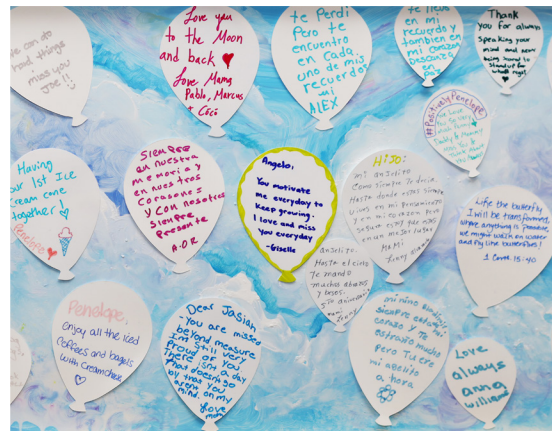 we can do
hard things
miss you
Joe!!
Love you
to the Moon
and back
Love Mama
Pablo, Marcus
+ Coco
te Perdi
Pero te
encuentro
en cada
uno de mis
recuerdos
mi
ALEX
te llevo
en mi
recuerdo y
tambien en
mi corazon
Descansa en
paz
Thank
you for always
speaking your
mind and
being hard to
stand up for
what's right
#PositivelyPenelope
Having
our 1st Ice
cream cone
together!
Penelope
Siempre
en nuestra
memoria y
en nuestros
corazones
y con nosotros
siempre
presente
A.O.R
Angelo:
You motivate
me everyday to
keep growing.
I love and miss
you everyday
-Giselle
Hijo:
mi angelito
como siempre te decia,
Hasta donde estes siempre
vives en mi pensamiento
y en mi corazon
en un mejor lugar
TQM
mami
angelito:
Hasta el cielo
te mando
muchos abrazos
y besos.
Like the butterfly
I will be transformed
where anything is possible
we might walk on water
and fly like butterflies!
1 Corint. 15:40
Penelope,
enjoy all the iced
coffees and bagels
with creamcheese
Dear Jasiah
-You are missed
beyond measure
I'm Still very
Proud of You
There isn't a day
that doesn't go
by that you
arent on my
mind.
Love
mom
mi niño
siempre
corazo y te
extraño mucho
pero tu ere
mi abelito
a hora
Love
always
anna
williams